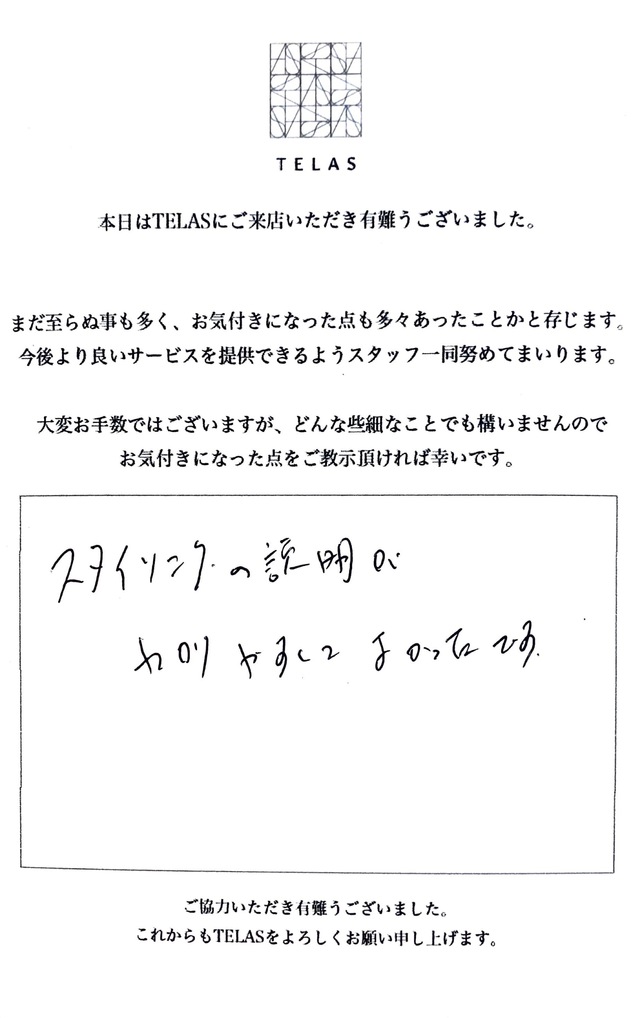 TELAS
本日はTELASにご来店いただき有難うございました。
まだ至らぬ事も多く、お気付きになった点も多々あったことかと存じます。
今後より良いサービスを提供できるようスタッフ一同努めてまいります。
大変お手数ではございますが、どんな些細なことでも構いませんので
お気付きになった点をご教示頂ければ幸いです。
スタイリングの説明が
わかりやすくてよかったです。
ご協力いただき有難うございました。
これからもTELASをよろしくお願い申し上げます。